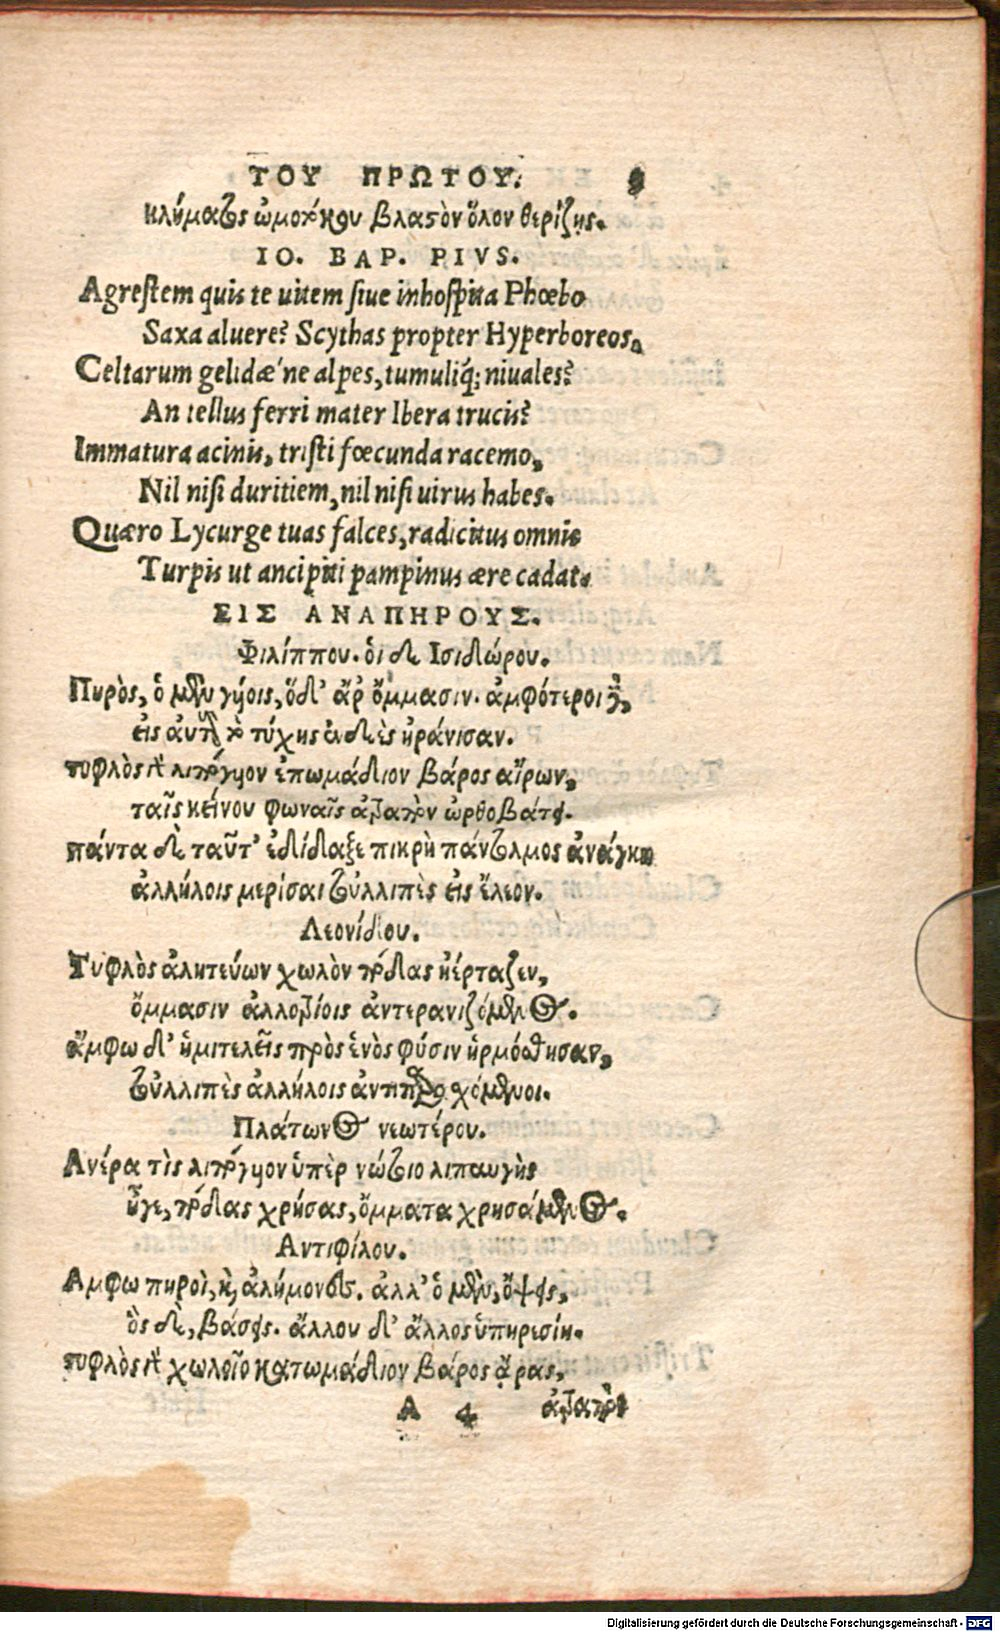 ΤΟΥ ΠΡΩΤΟΥ. 9
κλήματος ὠμοχάκου βλαστὸν ὅλον θερίζῃς.
IO. BAP. PIVS.
Agrestem quis te uitem siue inhospita Phœbo
Saxa aluere? Scythas propter Hyperboreos,
Celtarum gelidæ'ne alpes, tumuliq́; niuales?
An tellus ferri mater Ibera trucis?
Immatura acinis, tristi fœcunda racemo,
Nil nisi duritiem, nil nisi uirus habes.
Quæro Lycurge tuas falces, radicitus omnis
Turpis ut ancipiti pampinus ære cadat.
ΕΙΣ ΑΝΑΠΗΡΟΥΣ.
Φιλίππου. ὁι δὲ Ισιδώρου.
Πηρὸς, ὁ μὲν γήοις, ὅδ' ἄρ ὄμμασιν. ἀμφότεροι δ,
εἰς ἀυτὸν τύχης ἐνδεὲς ἠράνισαν.
τυφλὸς γὸ λιπόγυιον ἐπωμάδιον βάρος αἴρων,
ταῖς κείνου φωναῖς ἀτραπὸν ὠρθοβάτει.
πάντα δὲ ταῦτ' ἐδίδαξε πικρὴ πάντολμος ἀνάγκη
ἀλλήλοις μερίσαι τοὐλλιπὲς εἰς ἔλεον.
Λεονίδου.
Τυφλὸς ἀλητεύων χωλὸν πόδας ἠέρταζεν,
ὄμμασιν ἀλλοτρίοις ἀντερανιζόμενος.
ἄμφω δ' ἡμιτελεῖς πρὸς ἑνὸς φύσιν ἡρμόσθησαν,
τοὐλλιπὲς ἀλλήλοις ἀντιπαρασχόμενοι.
Πλάτωνος νεωτέρου.
Ανέρα τὶς λιπόγυιον ὑπὲρ νώτοιο λιπαυγὴς
ἦγε, πόδας χρήσας, ὄμματα χρησάμενος.
Αντιφίλου.
Αμφω πηροὶ, κὶ ἀλήμονες. ἀλλ' ὁ μὲν, ὄψεις,
ὃς δὲ, βάσεις. ἄλλου δ' ἄλλος ὑπηρεσίη.
τυφλὸς γὸ χωλοῖο κατωμάδιον βάρος ἄρας,
A 4 ἀτραπὸν
Digitalisierung gefördert durch die Deutsche Forschungsgemeinschaft - DFG